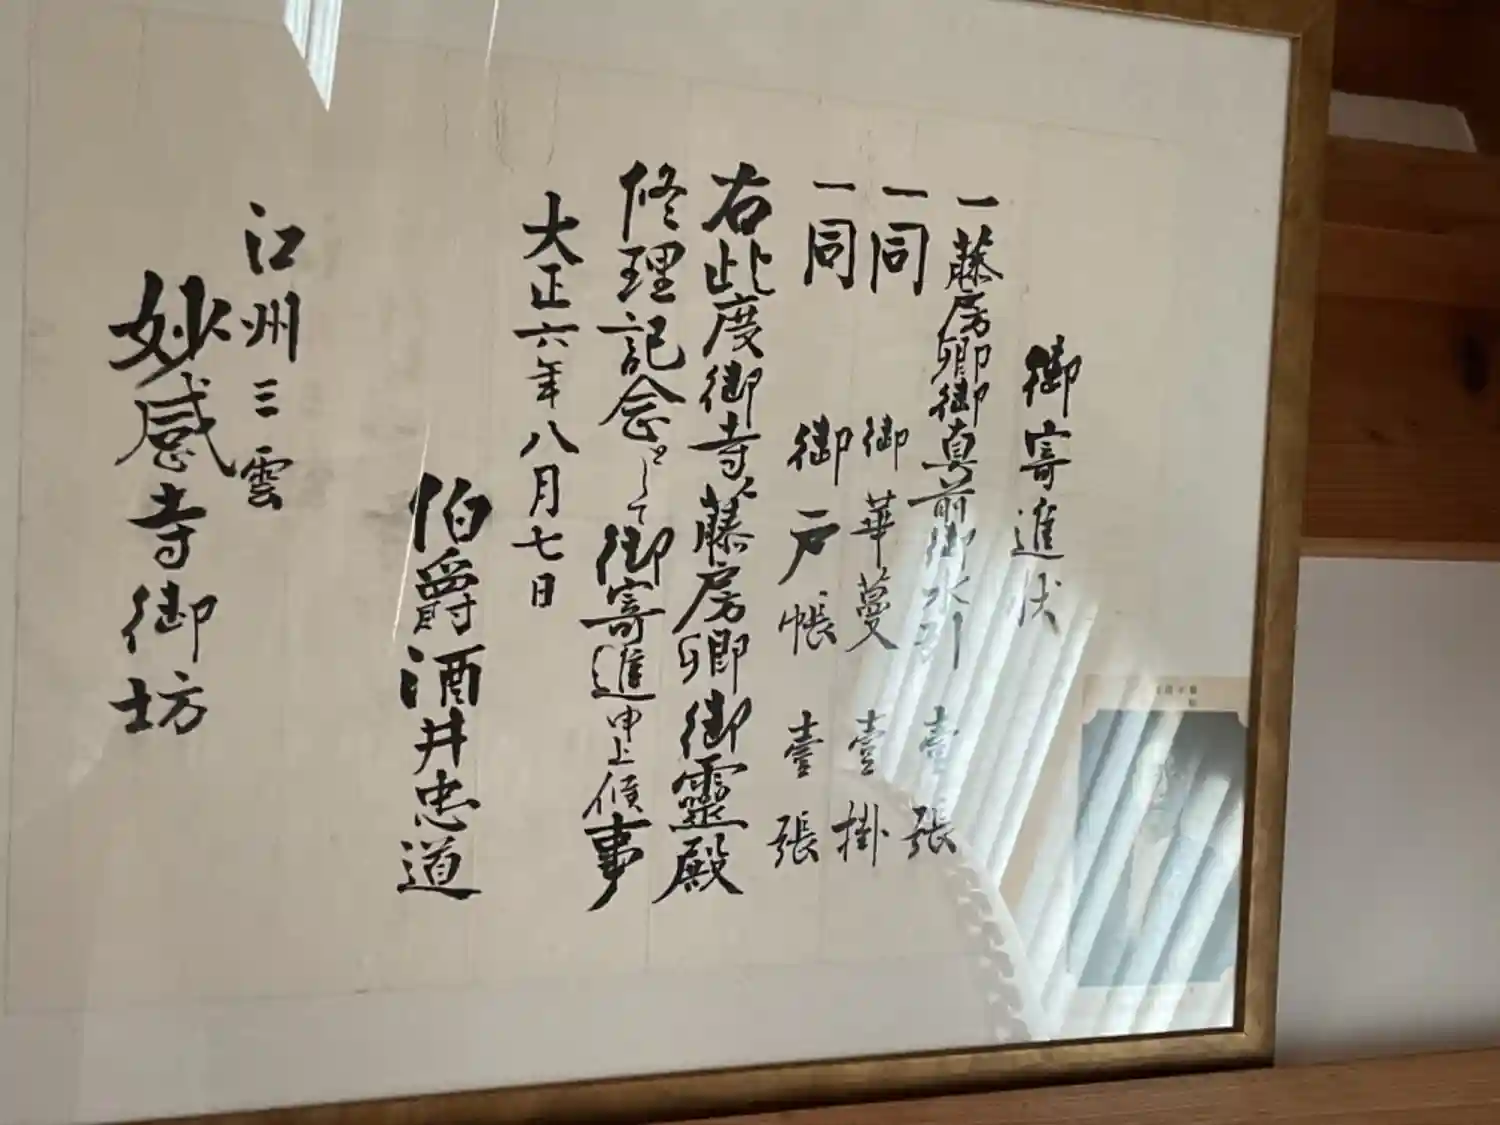 御寄進状
一藤房卿御真前御水引 壹張
一同 御華蔓 壹掛
一同 御戸帳 壹張
右此度御寺ニ藤房卿御靈殿
修理記念として御寄進申上候事
大正六年八月七日
伯爵酒井忠道
江州三雲
妙感寺御坊